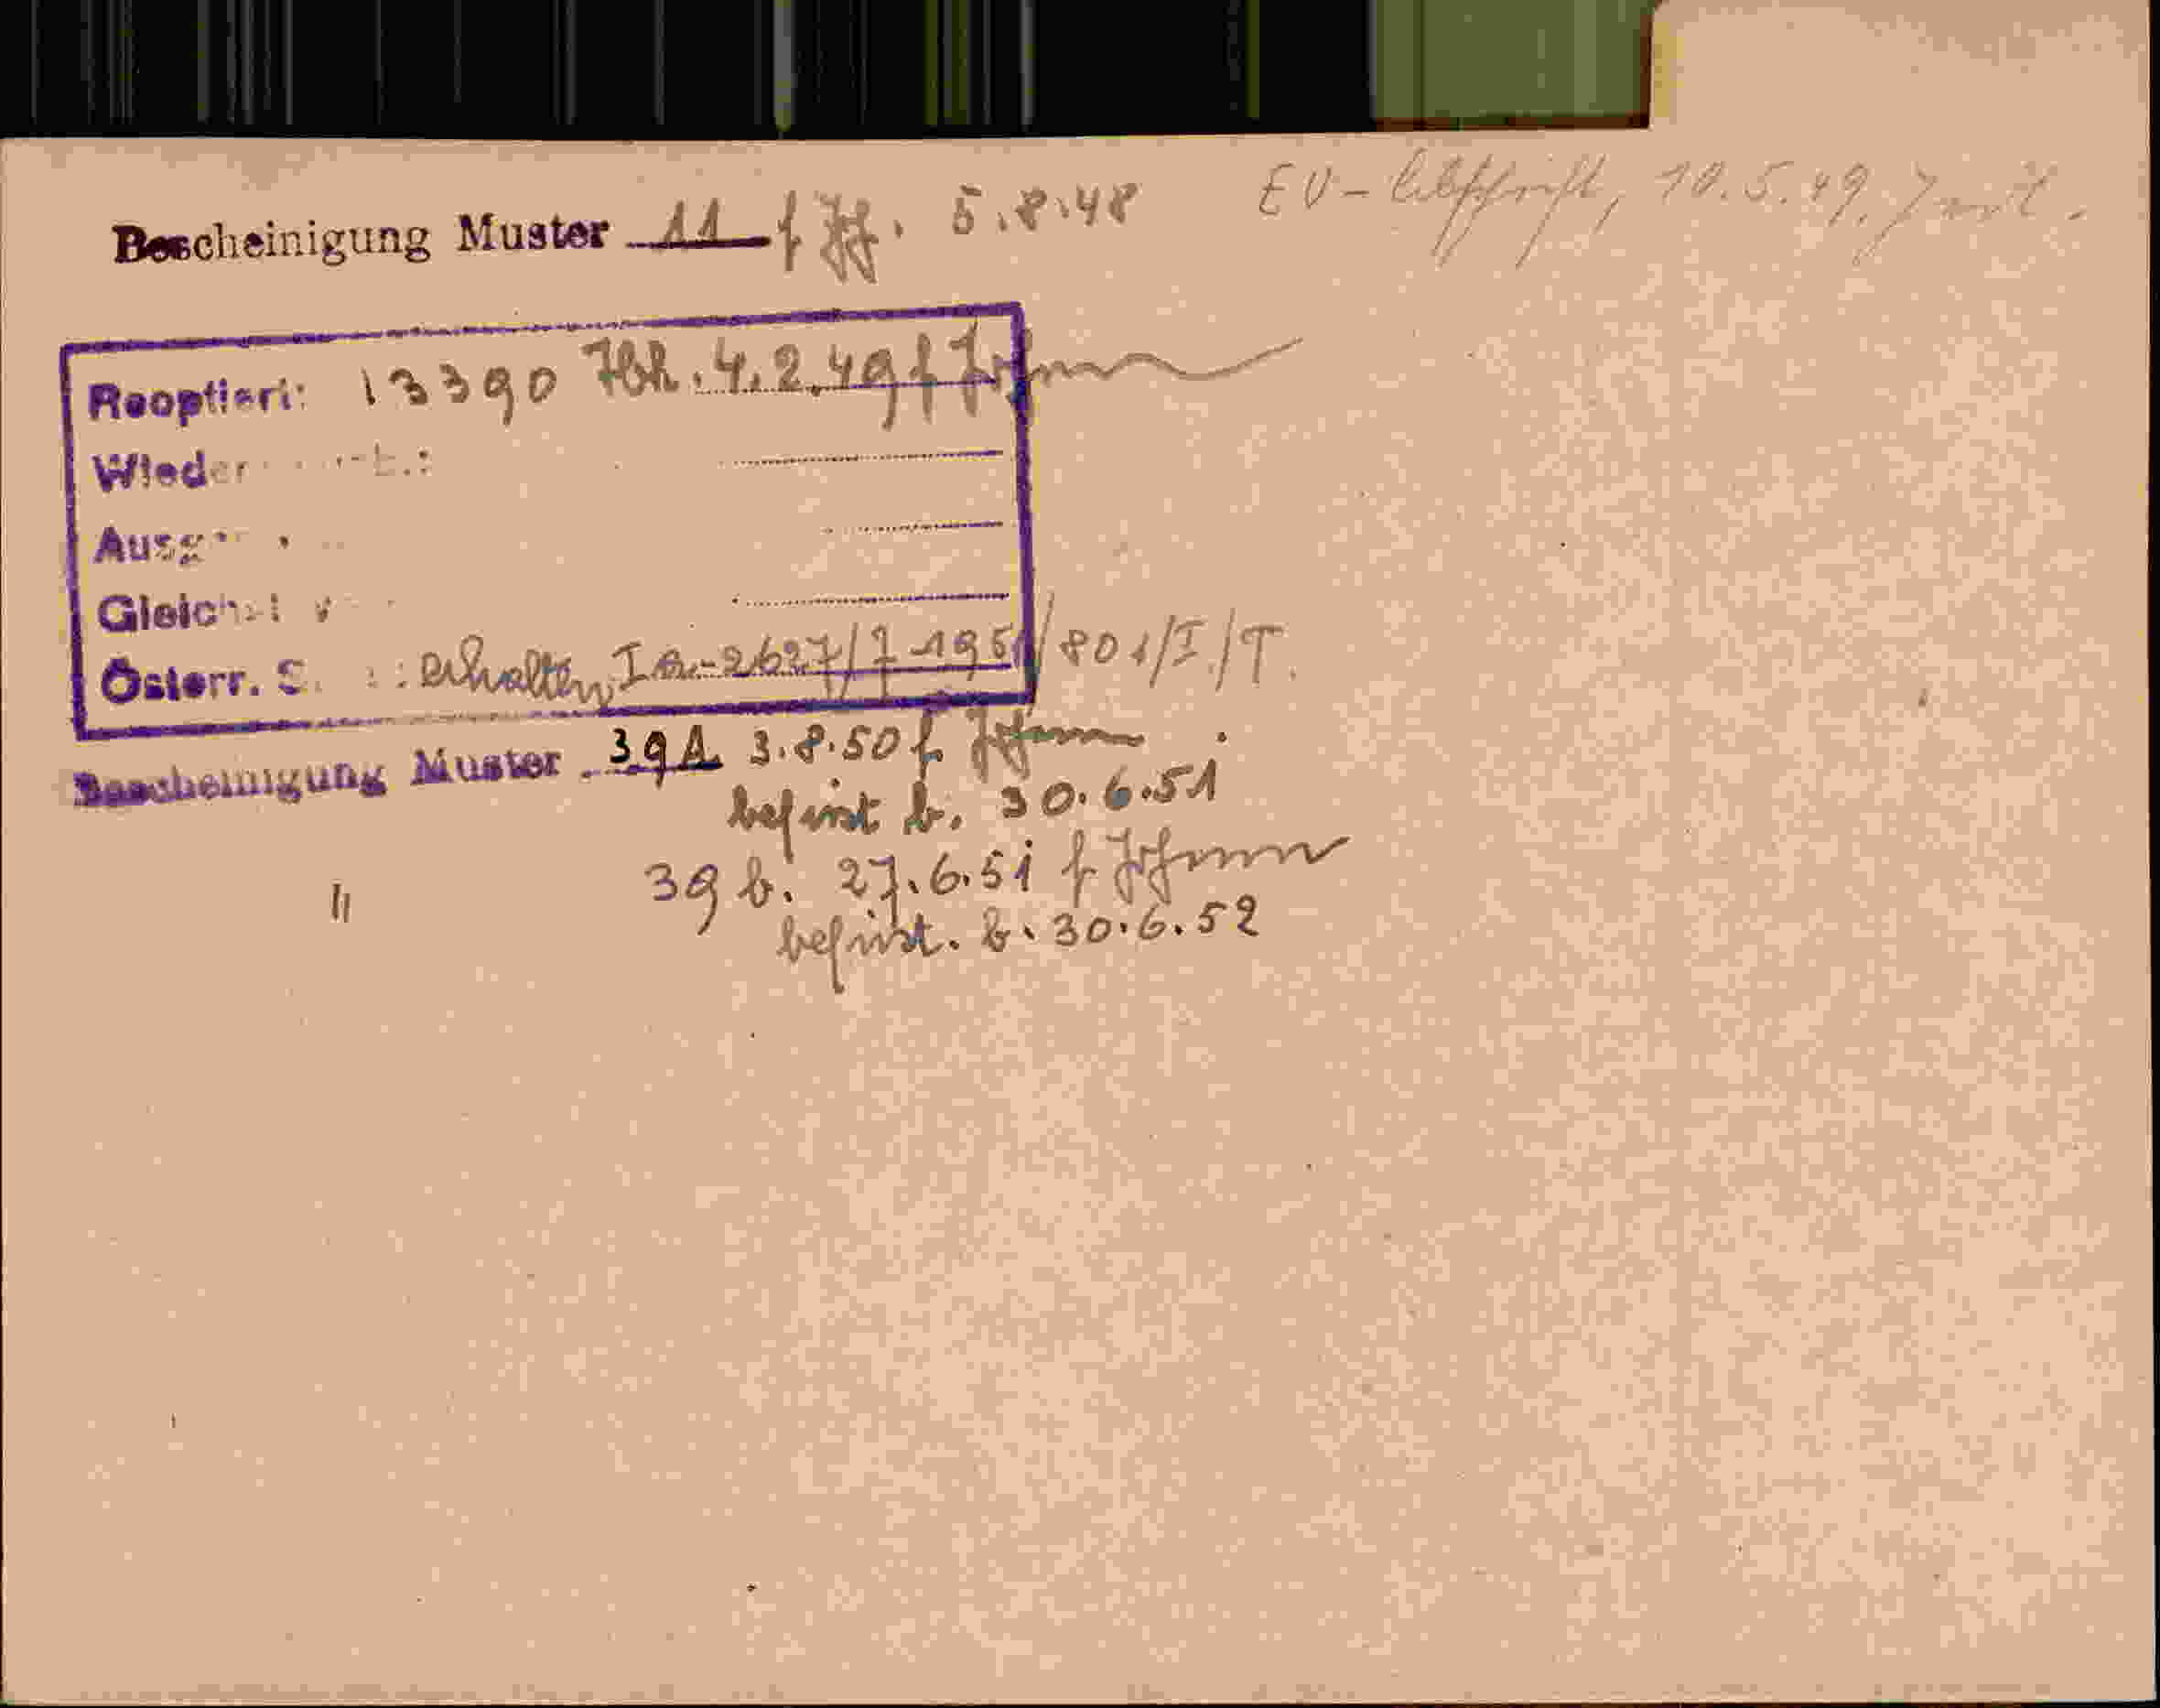 EV-Abschrift, 10.5.49.
Bescheinigung Muster 11 f 5.8.48
Reoptiert: 13390 4.2.49 f
Wieder
Ausg
Gleich
Österr. S. : erhalten, Ia-2627/7-1951/801/I/T.
Bescheinigung Muster 39A 3.8.50 f
befrist b. 30.6.51
" 39 b. 27.6.51 f
befrist. b. 30.6.52